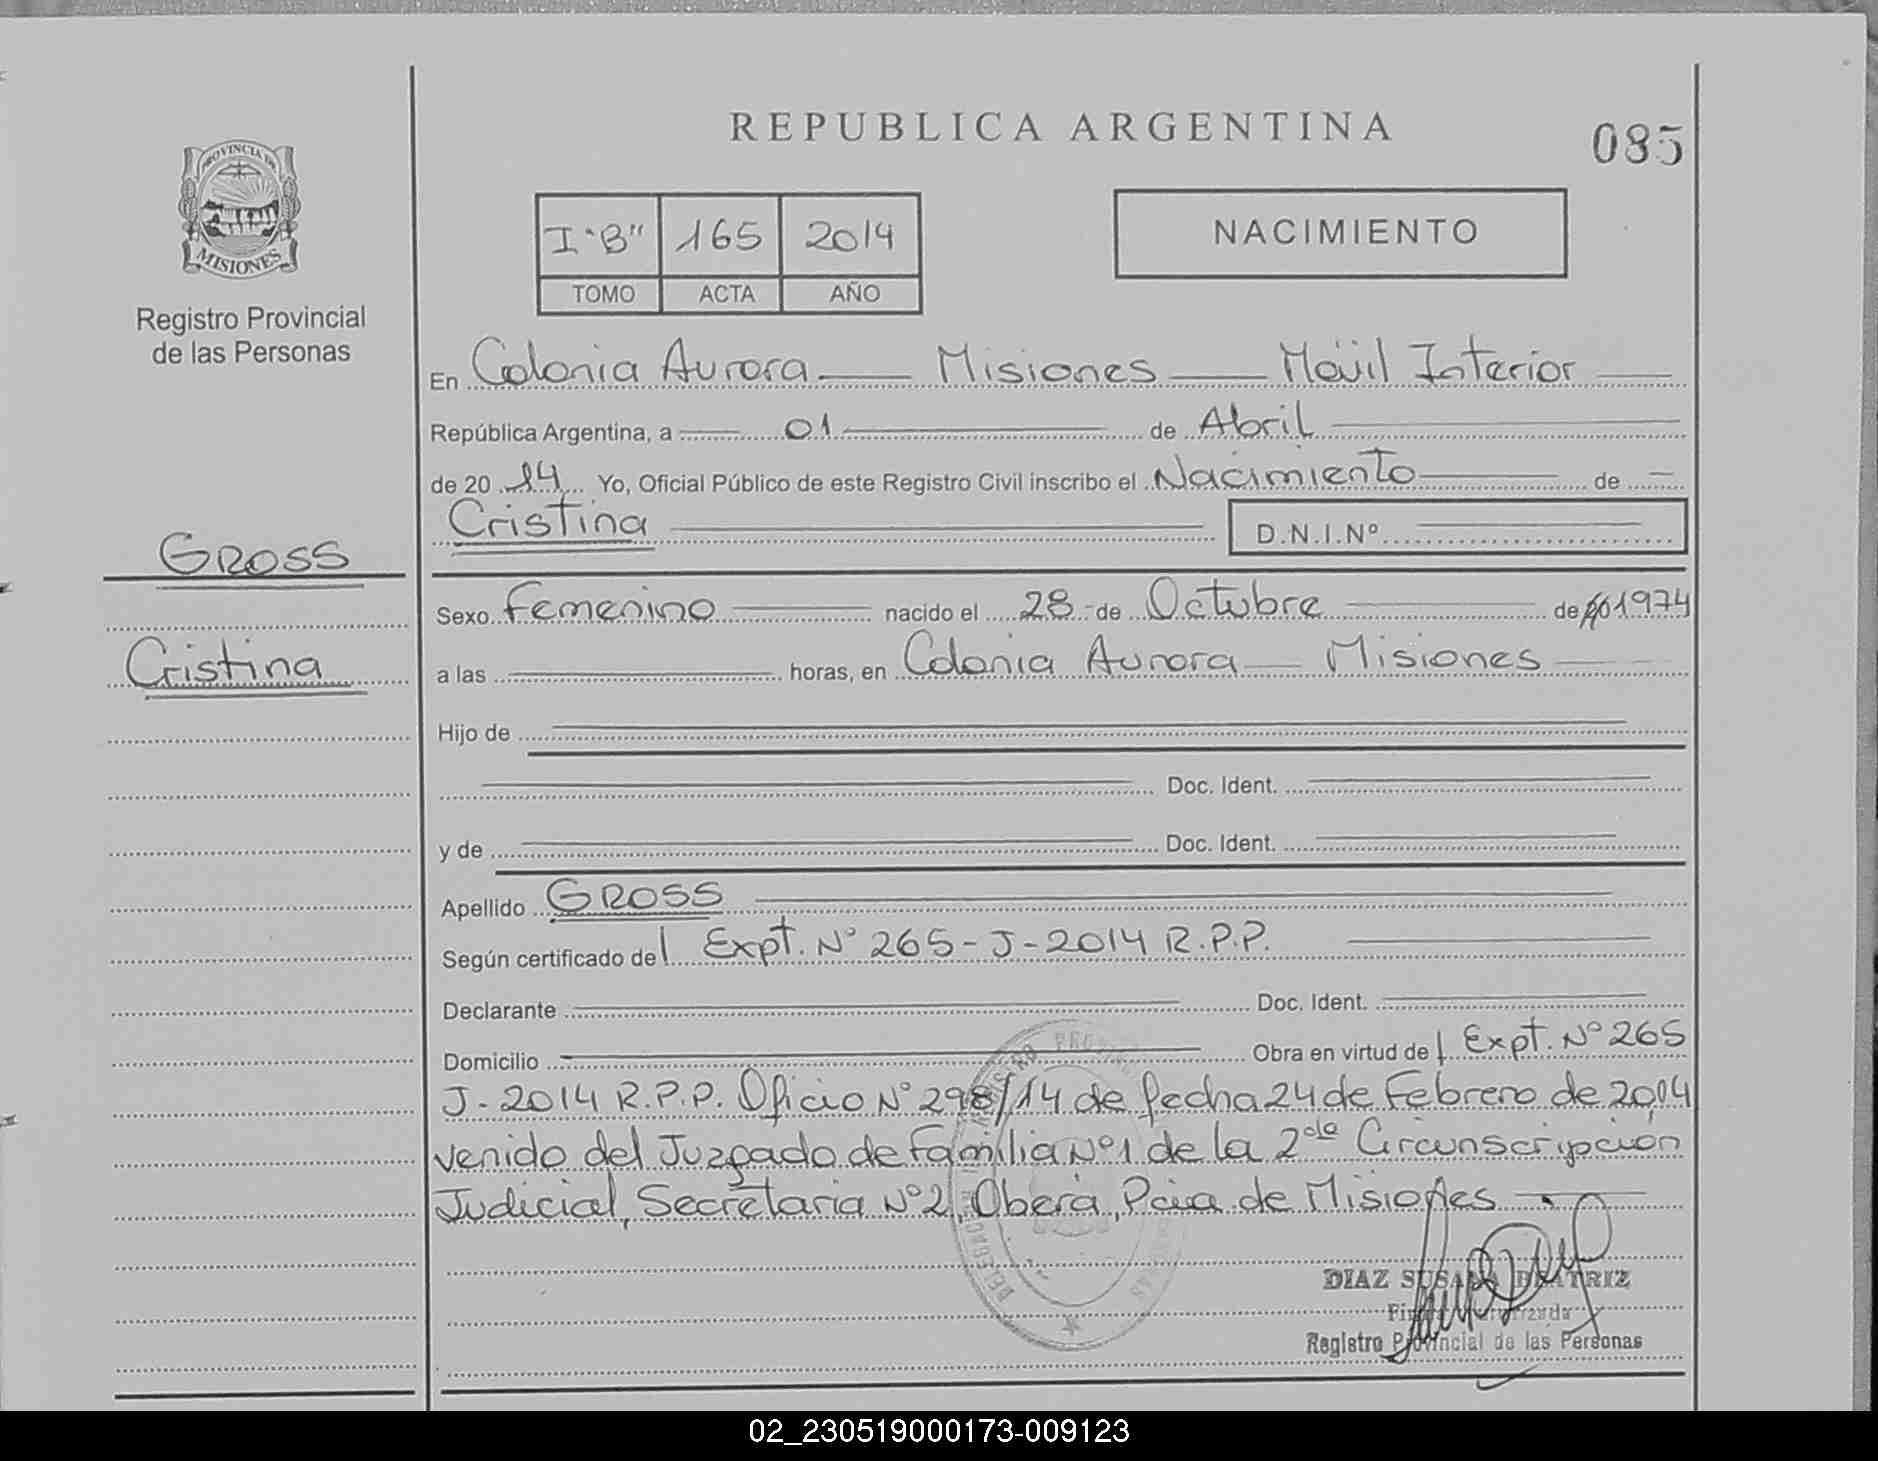 REPUBLICA ARGENTINA
085
PROVINCIA DE
MISIONES
Registro Provincial
de las Personas
I "B" 165 2014
TOMO ACTA AÑO
NACIMIENTO
En Colonia Aurora Misiones Móvil Interior
República Argentina, a 01 de Abril
de 20 14 Yo, Oficial Público de este Registro Civil inscribo el Nacimiento de
Cristina D.N.I.Nº
GROSS
Cristina
Sexo Femenino nacido el 28 de Octubre de 1974
a las horas, en Colonia Aurora Misiones
Hijo de
Doc. Ident.
y de Doc. Ident.
Apellido GROSS
Según certificado del Expt. Nº 265-J-2014 R.P.P.
Declarante Doc. Ident.
Domicilio Obra en virtud del Expt. Nº 265
J-2014 R.P.P. Oficio Nº 298/14 de fecha 24 de Febrero de 2014
venido del Juzgado de Familia Nº1 de la 2da Circunscripción
Judicial, Secretaria Nº2, Oberá, Pcia de Misiones
DIAZ SUSANA BEATRIZ
Registro Provincial de las Personas
02_230519000173-009123